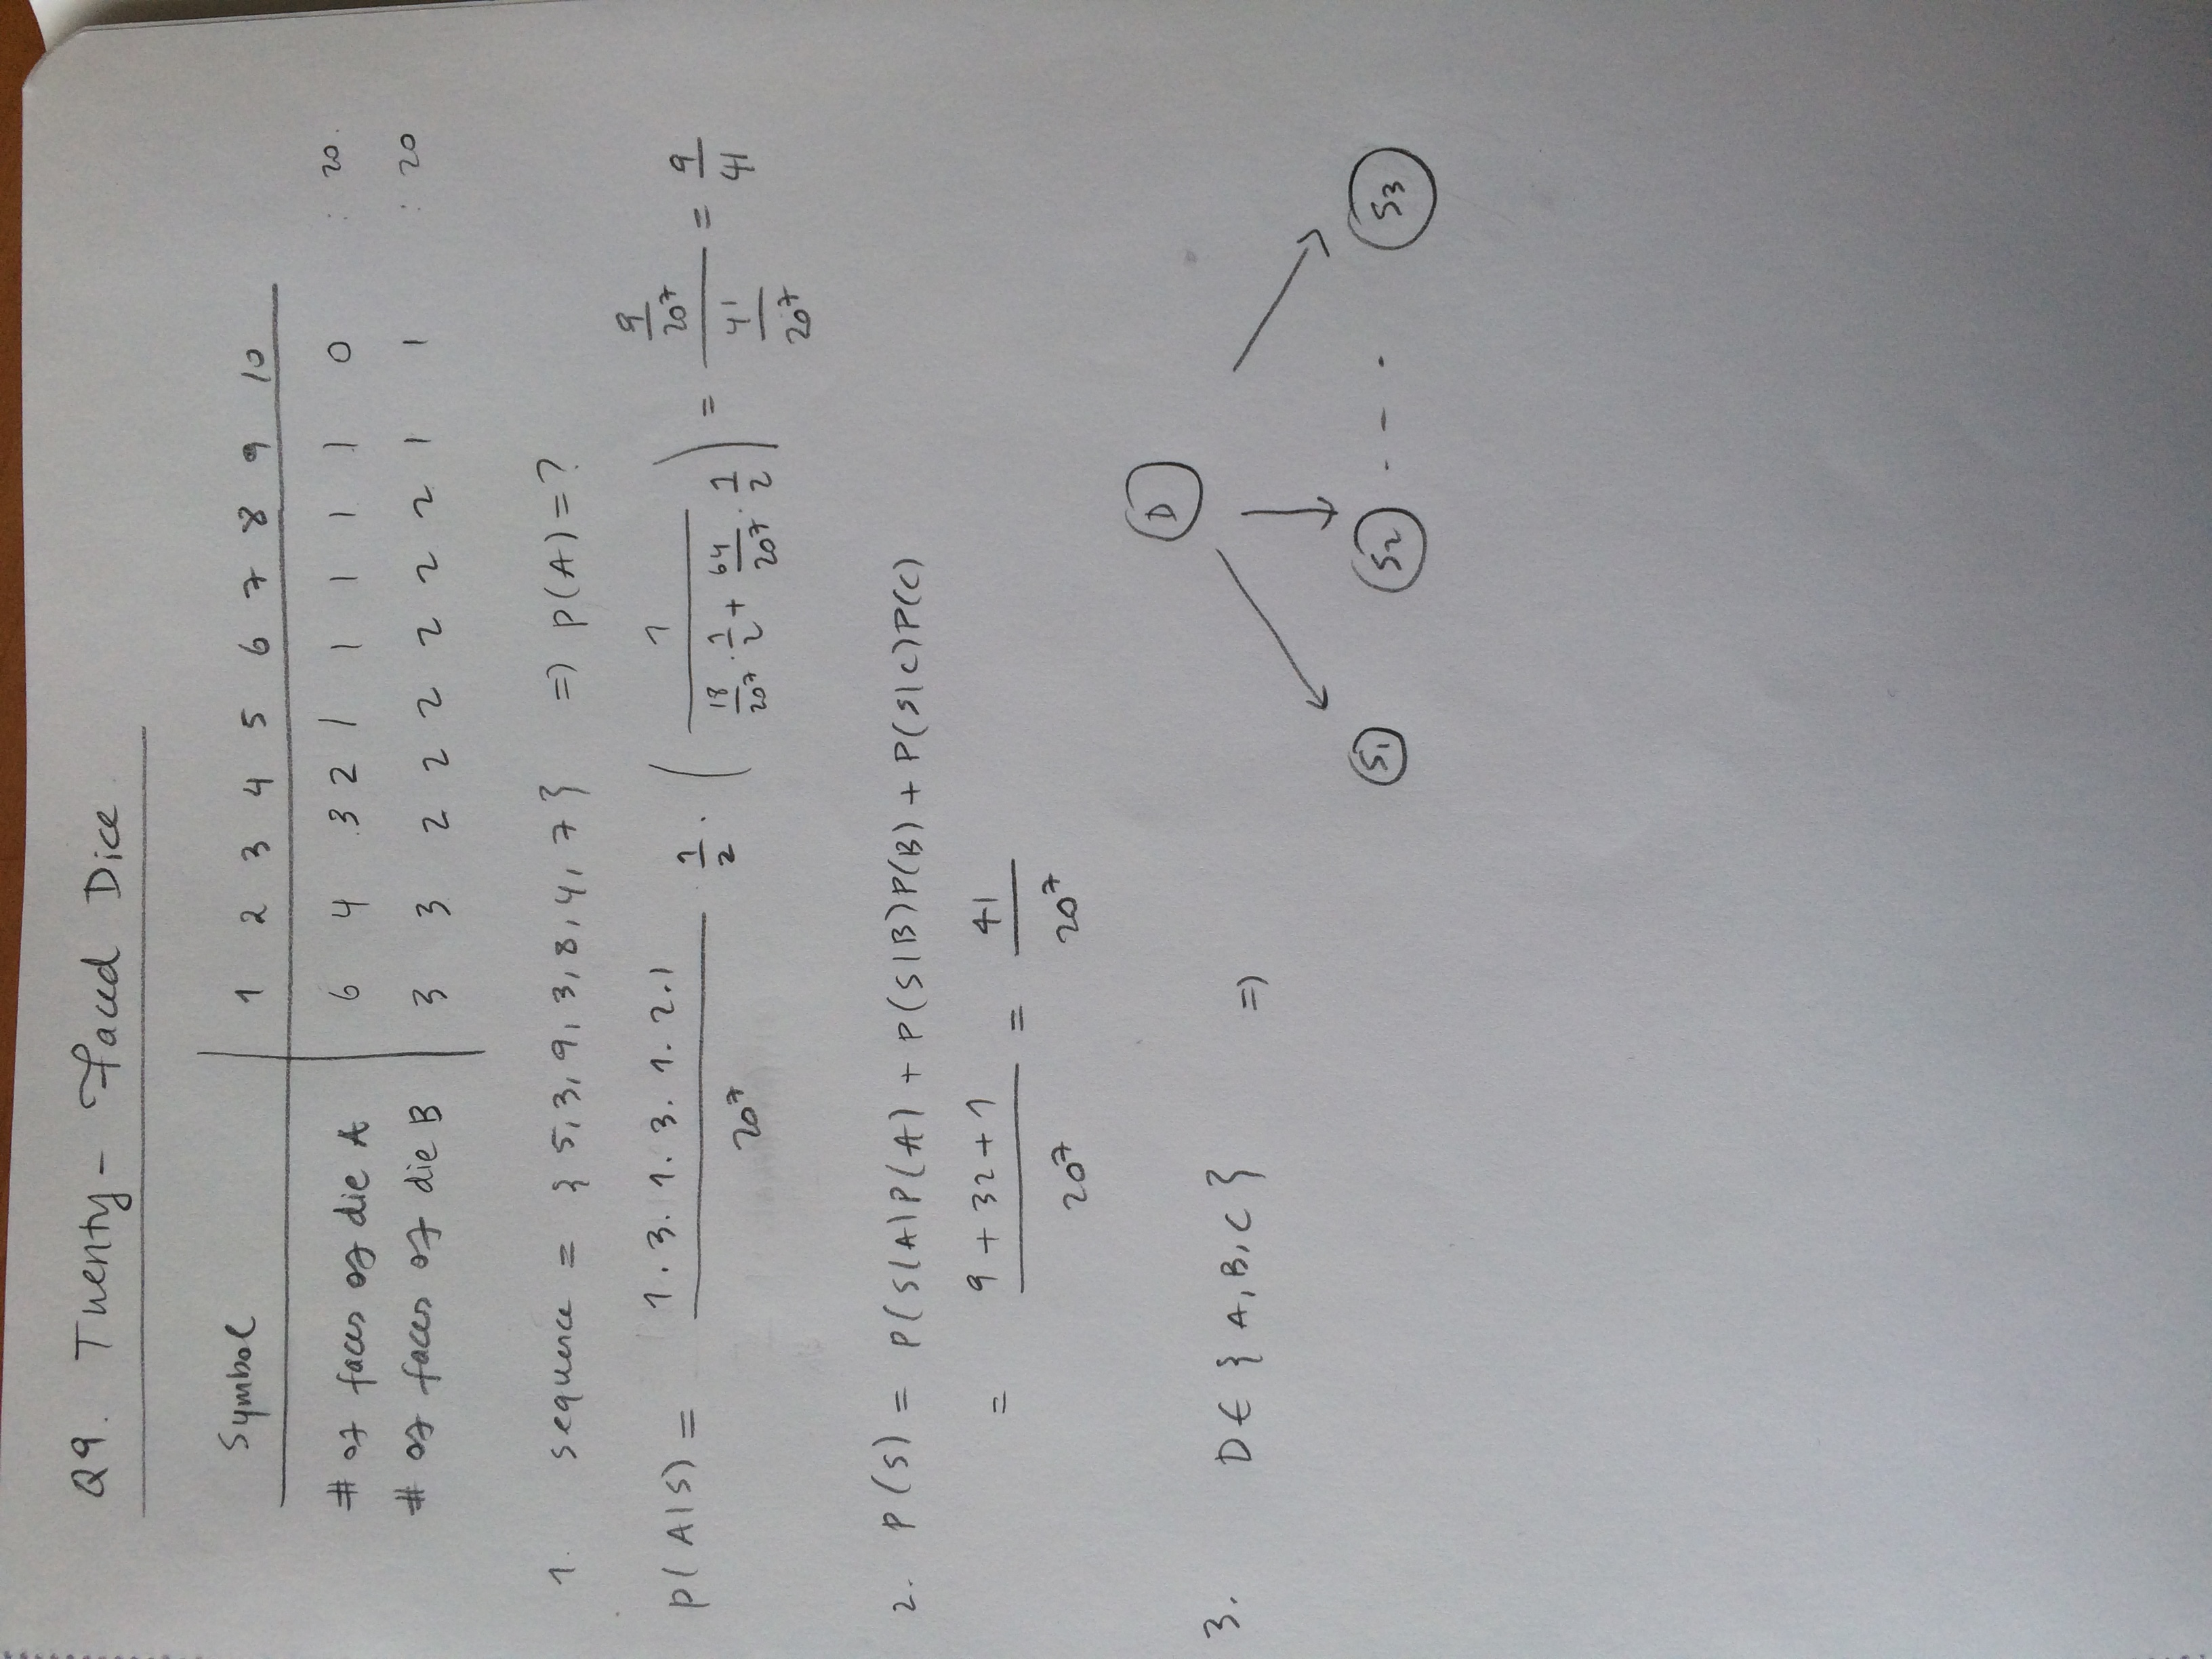 Q9. Twenty-Faced Dice
Symbol 1 2 3 4 5 6 7 8 9 10
# of faces of die A 6 4 3 2 1 1 1 1 1 0 : 20.
# of faces of die B 3 3 2 2 2 2 2 2 1 1 : 20
1. sequence = {5,3,9,3,8,4,7} => p(A)=?
p(A|S) = \frac{1.3.1.3.1.2.1}{20^7} \frac{1}{2} . ( \frac{1}{\frac{18}{20^7} . \frac{1}{2} + \frac{64}{20^7} . \frac{1}{2}} ) = \frac{\frac{9}{20^7}}{\frac{41}{20^7}} = \frac{9}{41}
2. P(S) = P(S|A)P(A) + P(S|B)P(B) + P(S|C)P(C)
= \frac{9+32+1}{20^7} = \frac{41}{20^7}
D
3. D ∈ {A,B,C} =>
S1 S2 . - - . S3